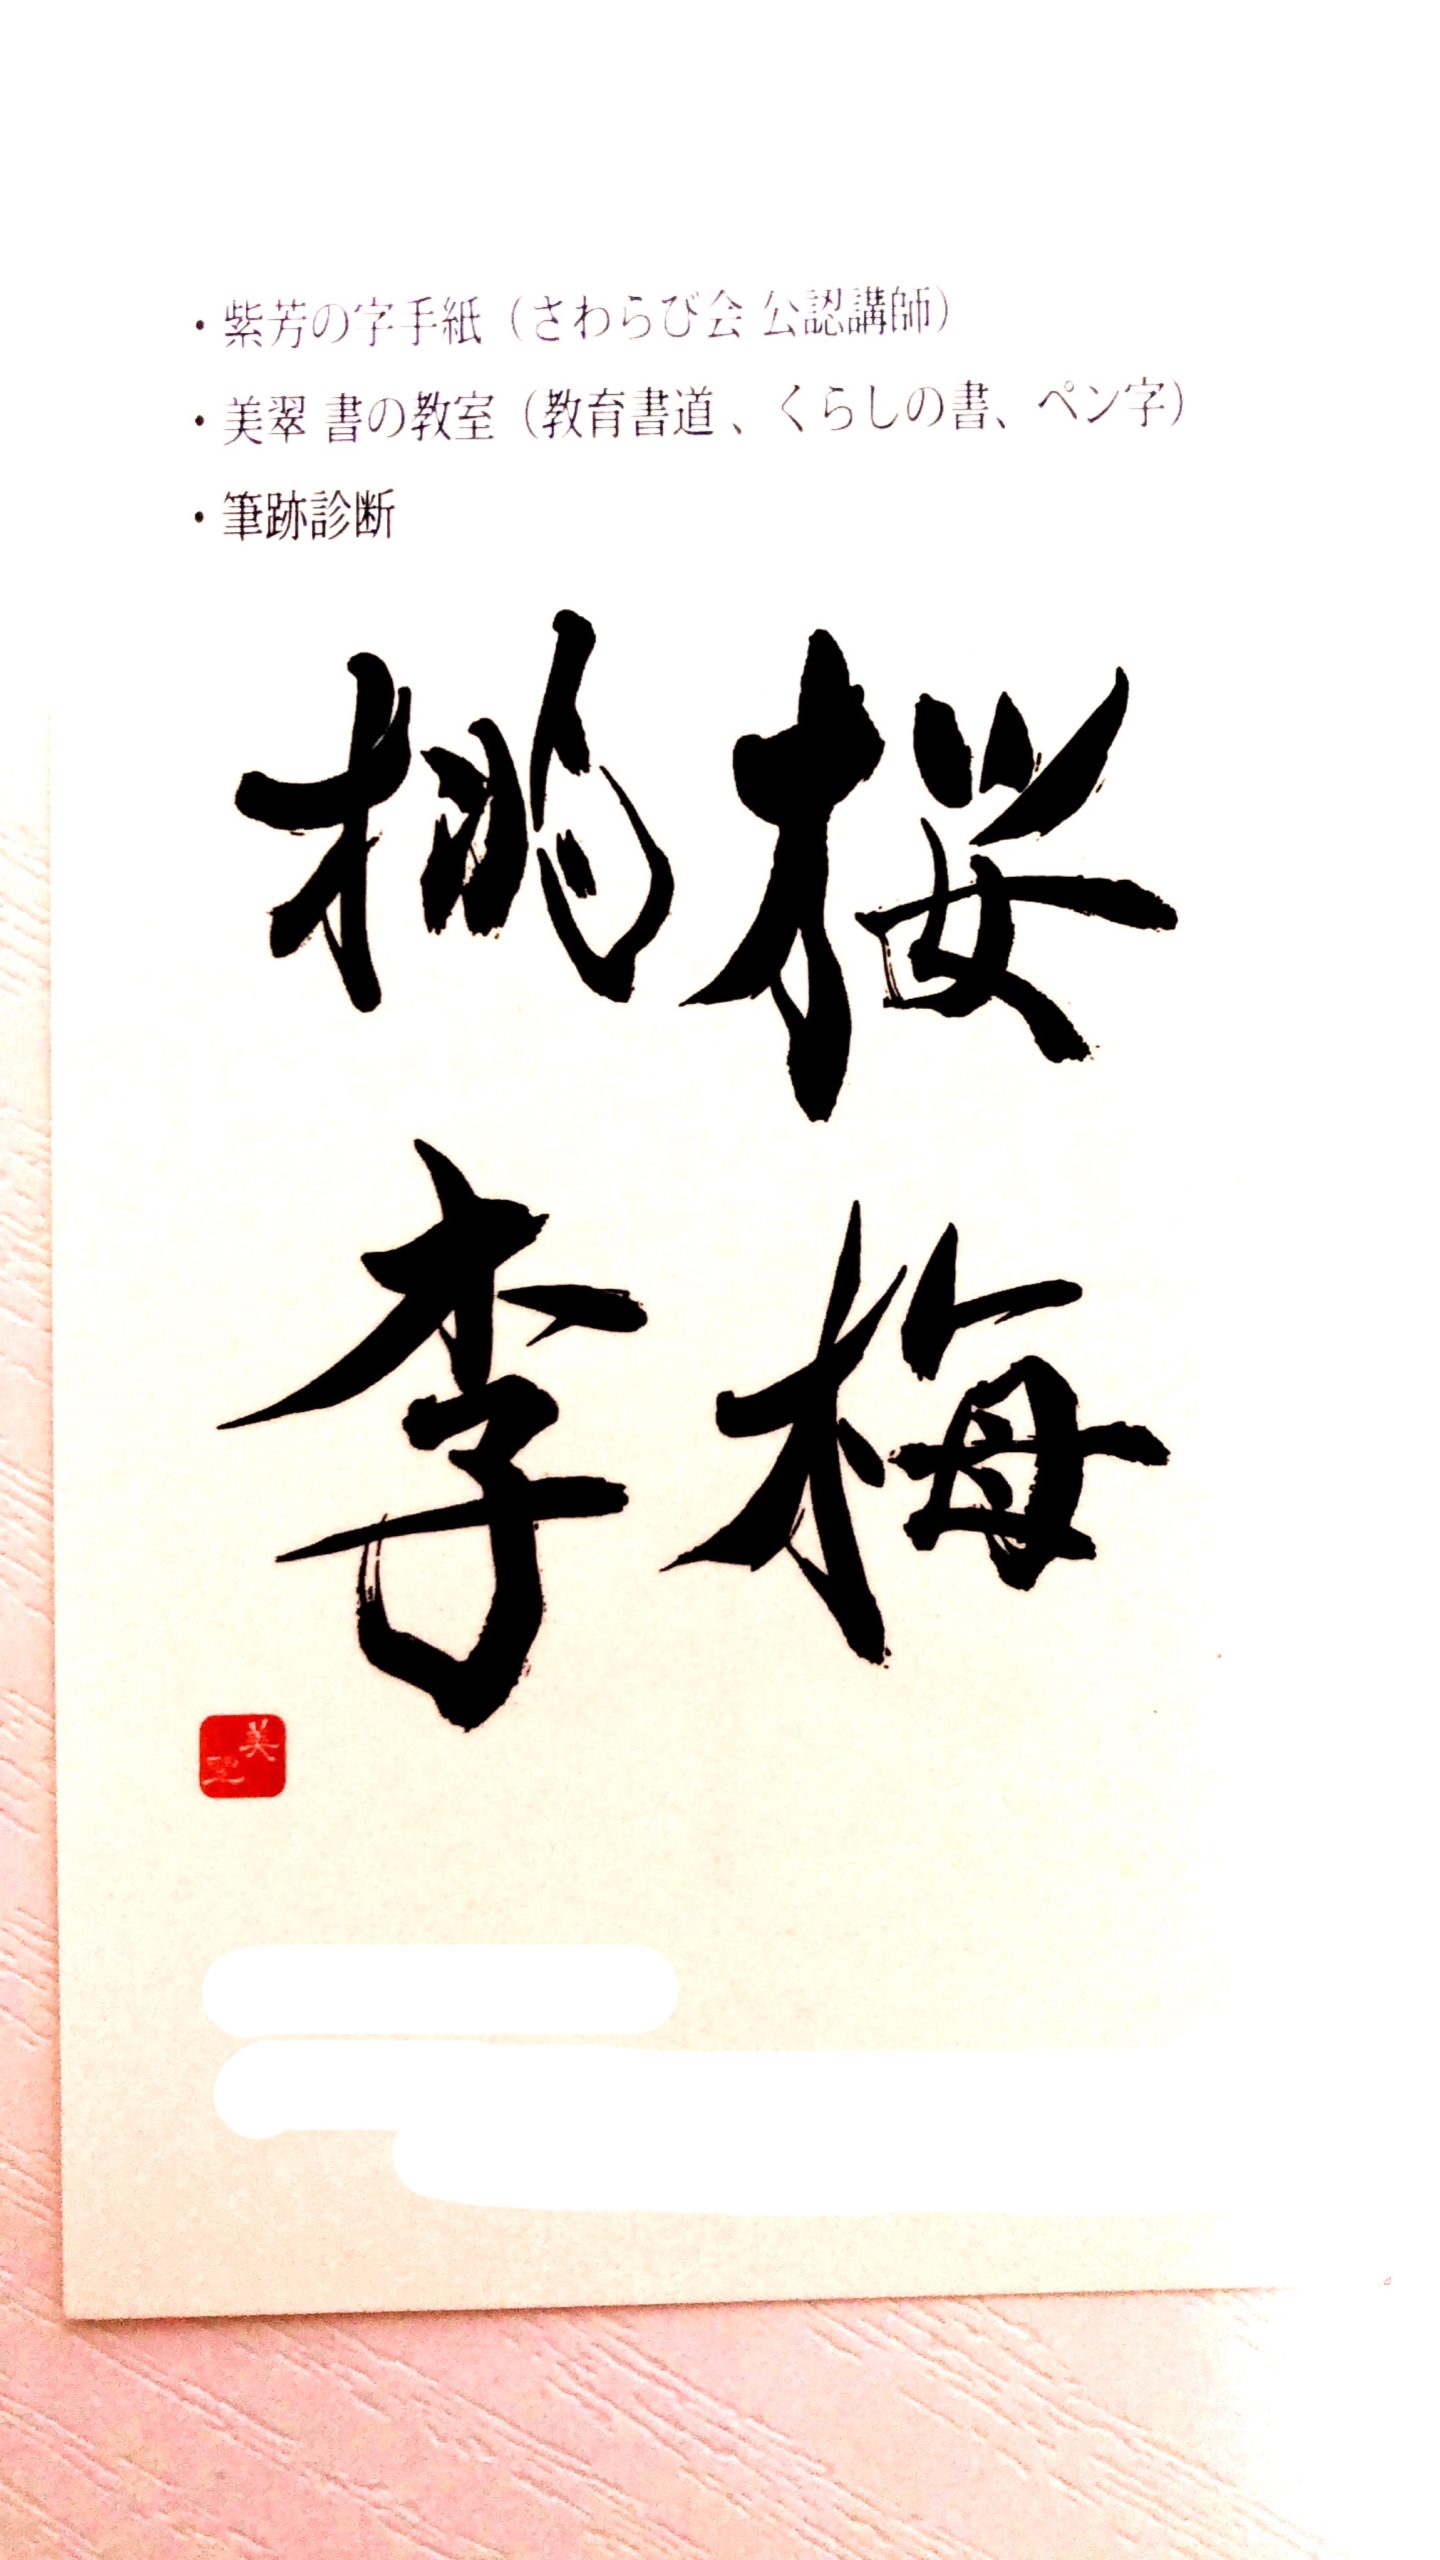 ・紫芳の字手紙（さわらび会 公認講師）
・美翠 書の教室（教育書道、くらしの書、ペン字）
・筆跡診断
桜梅
桃李
美翠